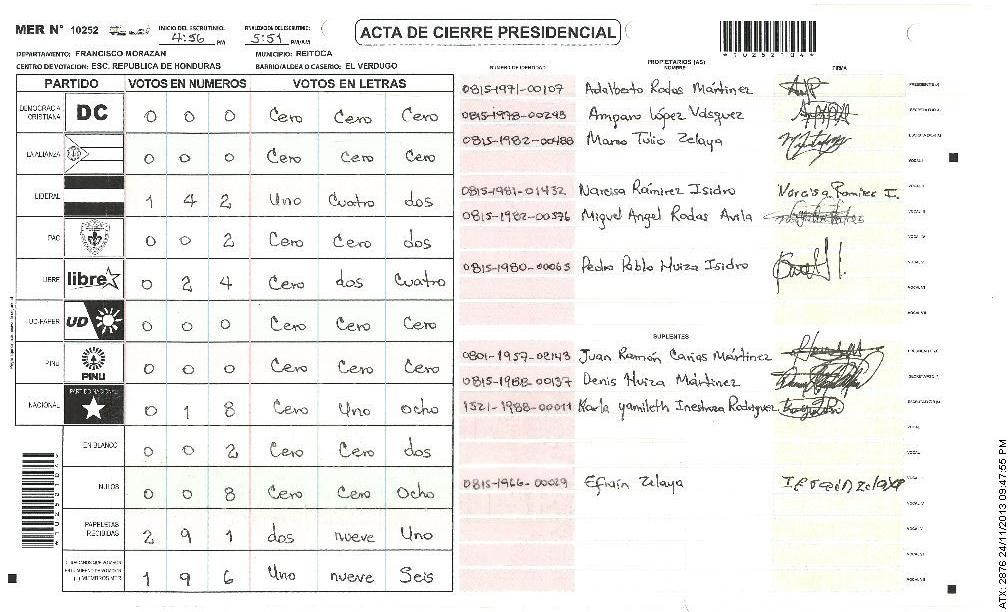 MER N° 10252
INICIO DEL ESCRUTINIO: 4:56 PM
FINALIZACION DEL ESCRUTINIO: 5:51 PM/AM
ACTA DE CIERRE PRESIDENCIAL
DEPARTAMENTO: FRANCISCO MORAZAN MUNICIPIO: REITOCA
CENTRO DE VOTACION: ESC. REPUBLICA DE HONDURAS BARRIO/ALDEA O CASERIO: EL VERDUGO
PARTIDO VOTOS EN NUMEROS VOTOS EN LETRAS
DEMOCRACIA CRISTIANA DC 0 0 0 Cero Cero Cero
LA ALIANZA 0 0 0 Cero Cero Cero
LIBERAL 1 4 2 Uno Cuatro dos
PAC 0 0 2 Cero Cero dos
LIBRE libre 0 2 4 Cero dos Cuatro
UD-FAPER UD 0 0 0 Cero Cero Cero
PINU PINU 0 0 0 Cero Cero Cero
NACIONAL PARTIDO NACIONAL 0 1 8 Cero Uno Ocho
EN BLANCO 0 0 2 Cero Cero dos
NULOS 0 0 8 Cero Cero Ocho
PAPELETAS RECIBIDAS 2 9 1 dos nueve Uno
1 9 6 Uno nueve Seis
NUMERO DE IDENTIDAD PROPIETARIOS (AS) NOMBRE FIRMA
0815-1971-00107 Adalberto Rodas Mártinez PRESIDENTE (A)
0815-1978-00293 Amparo López Vásquez SECRETARIO (A)
0815-1982-00488 Marco Tulio Zelaya ESCRUTADOR (A)
VOCAL I
0815-1981-01432 Narcisa Ramirez Isidro Narcisa Ramirez I. VOCAL II
0815-1982-00576 Miguel Angel Rodas Avila VOCAL III
VOCAL IV
0815-1980-00065 Pedro Pablo Muiza Isidro VOCAL V
VOCAL VI
VOCAL VII
SUPLENTES
0801-1957-02143 Juan Ramón Carias Mártinez PRESIDENTE (A)
0815-1988-00137 Denis Muiza Mártinez SECRETARIO (A)
1521-1988-00011 Karla yamileth Inestroza Rodriguez ESCRUTADOR (A)
VOCAL I
VOCAL II
0815-1966-00029 Efraín Zelaya VOCAL III
VOCAL IV
VOCAL V
VOCAL VI
VOCAL VII
*10252104*
ATX: 2876 24/11/2013 09:47:55 PM